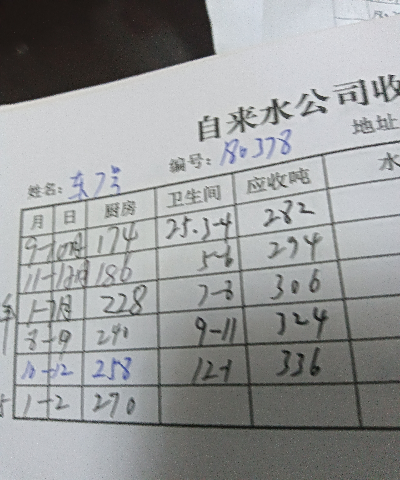 自来水公司收
姓名: 东7号 编号: 180378 地址
月 日 厨房 卫生间 应收吨 水
9-10月 174 25.3-4 282
11-12月 186 5-6 294
1-7月 228 7-8 306
8-9 240 9-11 324
10-12 258 12-1 336
1-2 270